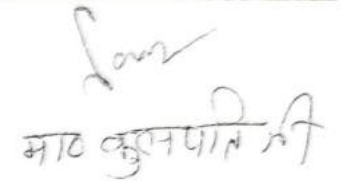 मा० कुलपति जी